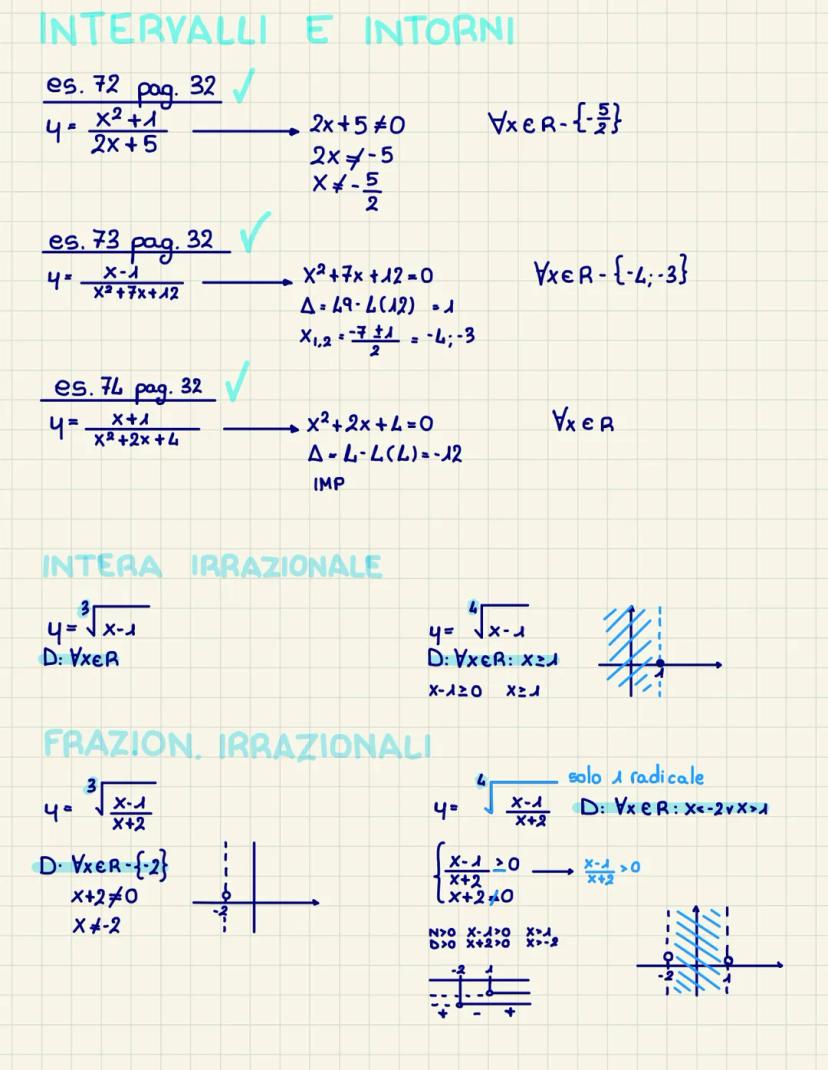 INTERVALLI E INTORNI
es. 72 pag. 32 ✓
y = (x²+1)/(2x+5) → 2x+5≠0 ∀x∈R-{-5/2}
2x≠-5
x≠-5/2
es. 73 pag. 32 ✓
y = (x-1)/(x²+7x+12) → x²+7x+12=0 ∀x∈R-{-4;-3}
Δ=49-4(12) =1
x₁,₂ = (-7±1)/2 = -4;-3
es. 74 pag. 32 ✓
y = (x+1)/(x²+2x+4) → x²+2x+4=0 ∀x∈R
Δ=4-4(4)=-12
IMP
INTERA IRRAZIONALE
y = ∛(x-1)
D: ∀x∈R
y = ∜(x-1)
D: ∀x∈R: x≥1
x-1≥0 x≥1
1
FRAZION. IRRAZIONALI
y = ∛((x-1)/(x+2))
D: ∀x∈R-{-2}
x+2≠0
x≠-2
-2
y = ∜((x-1)/(x+2)) solo 1 radicale D: ∀x∈R: x<-2 ∨ x>1
{ (x-1)/(x+2) ≥0 → (x-1)/(x+2) >0
x+2≠0
N>0 x-1>0 x>1
D>0 x+2>0 x>-2
-2 1
+ - +
-2 1